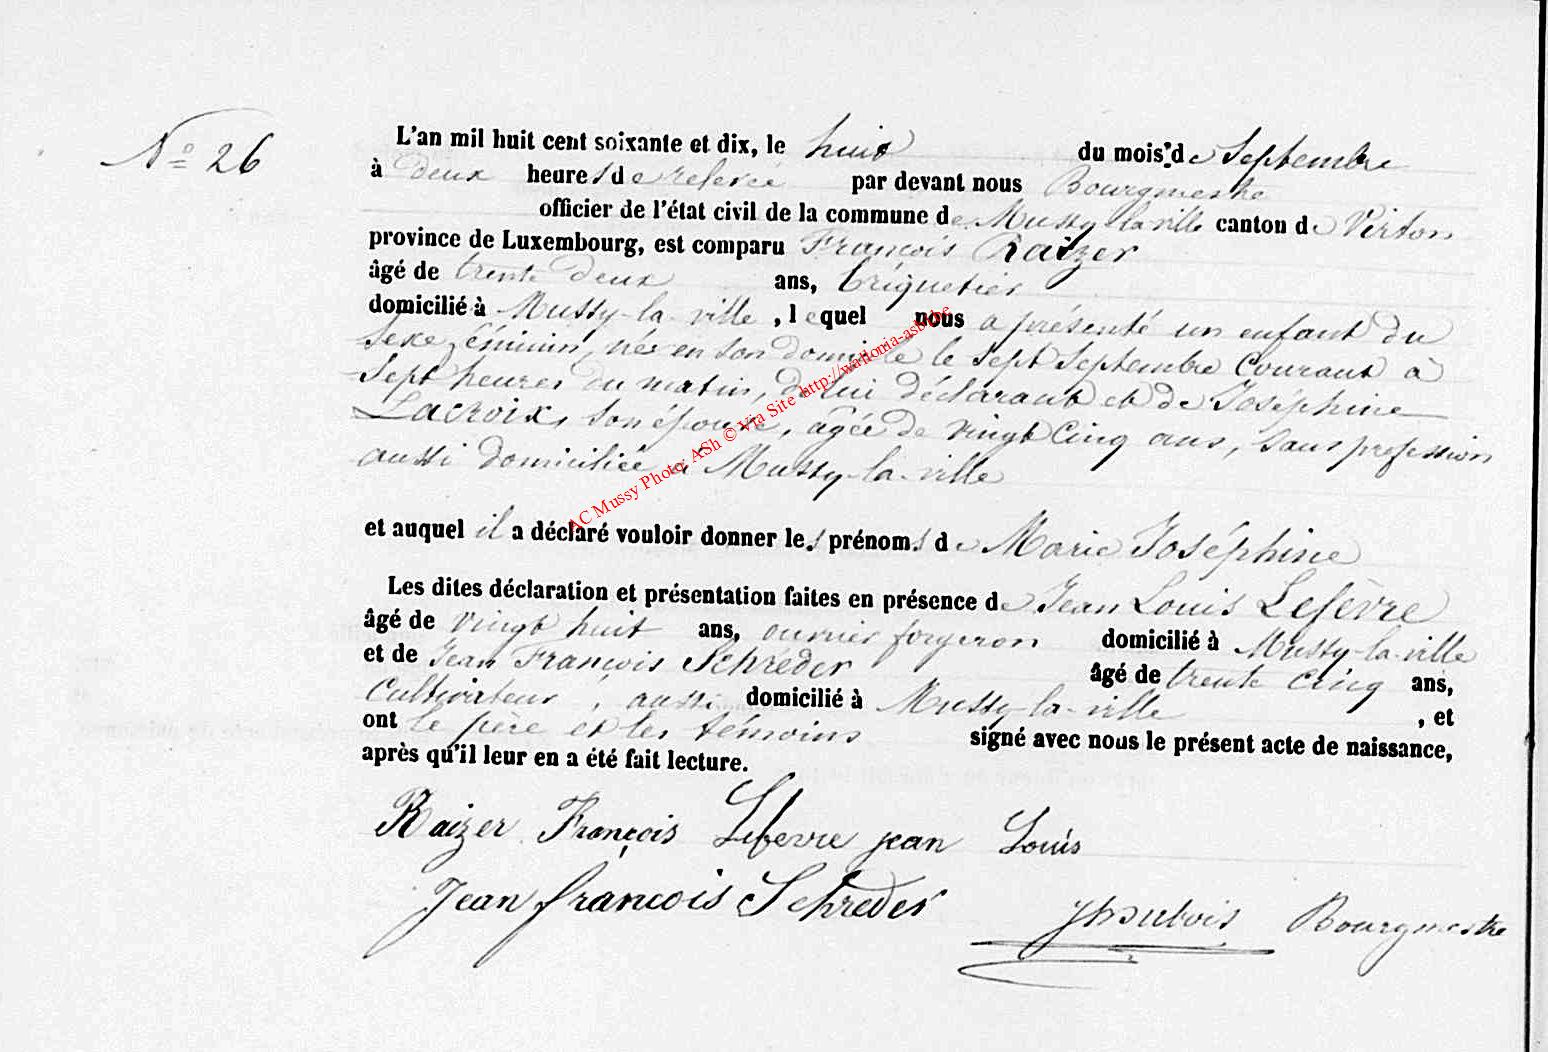 N° 26
L'an mil huit cent soixante et dix, le huit du mois de Septembre
à deux heures de relevée par devant nous Bourgmestre
officier de l'état civil de la commune de Mussy-la-ville canton de Virton
province de Luxembourg, est comparu François Raizer
âgé de trente deux ans, briquetier
domicilié à Mussy-la-ville, lequel nous a présenté un enfant du
Sexe féminin, née en son domicile le sept Septembre courant à
Sept heures du matin, de lui déclarant et de Joséphine
Lacroix, son épouse, agée de vingt cinq ans, sans profession
aussi domiciliée à Mussy-la-ville
et auquel il a déclaré vouloir donner les prénoms de Marie Joséphine
Les dites déclaration et présentation faites en présence de Jean Louis Lefèvre
âgé de vingt huit ans, ouvrier forgeron domicilié à Mussy-la-ville
et de Jean François Schréder âgé de trente cinq ans,
Cultivateur, aussi domicilié à Mussy-la-ville, et
ont le père et les témoins signé avec nous le présent acte de naissance,
après qu'il leur en a été fait lecture.
Raizer François Lefevre jean Louis
Jean françois Schreder JhDubois Bourgmestre
AC Mussy Photo: ASh © Via Site http://wallonia-asbl.be